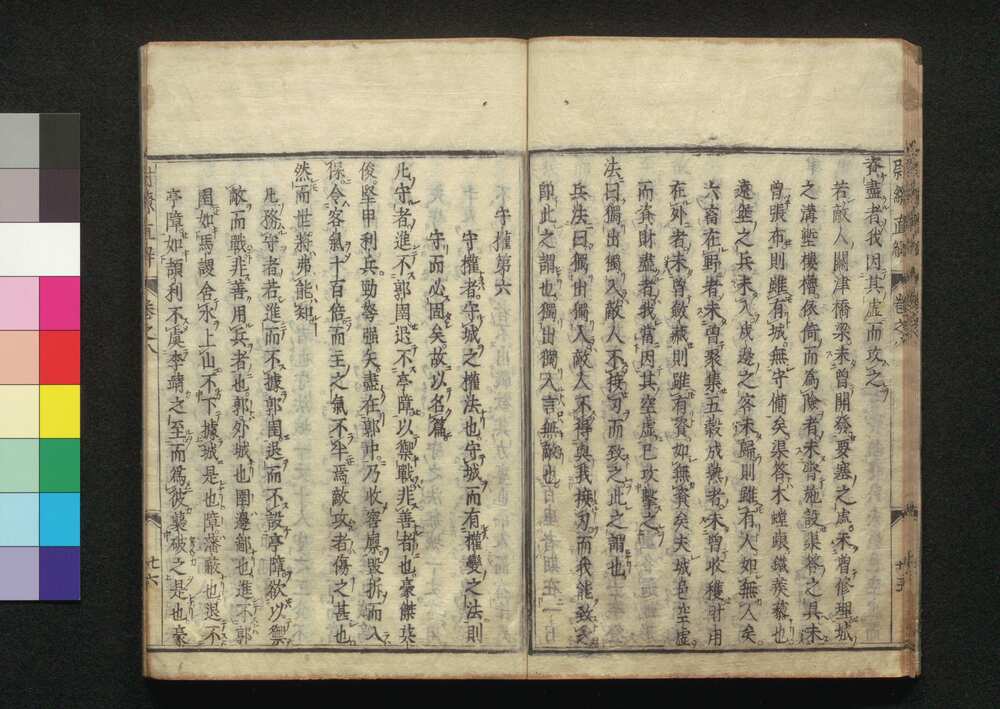 尉繚直解 卷之八 廿五
資盡者我因其虛而攻之
若敵人關津橋梁未曾開發要塞之處未曾修理城
之溝塹樓櫓依倚而為險者未嘗施設渠答之具未
曾張布則雖有城無守備矣渠答木螳螂鐵蒺藜也
遠堡之兵未入戍邊之客未歸則雖有人如無人矣
六畜在野者未曾聚集五穀成熟者未曾收穫財用
在外者未曾斂藏則雖有資如無資矣夫城邑空虛
而資財盡者我當因其空虛已攻擊之
法曰獨出獨入敵人不接刃而致之此之謂也
兵法曰獨出獨入敵人不得與我接刃而我能致之
即此之謂也獨出獨入言無敵也
守權第六
守權者守城之權法也守城而有權變之法則
守而必固矣故以名篇
凡守者進不郭圉退不亭障以禦戰非善者也豪傑英
俊堅甲利兵勁弩彊矢盡在郭中乃收窖廩毀折而入
保令客氣十百倍而主之氣不半焉敵攻者傷之甚也
然而世將弗能知
凡務守者若進而不據郭圉退而不設亭障欲以禦
敵而戰非善用兵者也郭外城也圉邊鄙也進不郭
圉如馬謖舍水上山不下據城是也障藩蔽也退不
亭障如頡利不虞李靖之至而為彼襲破之是也豪
尉繚直解 卷之八 廿六